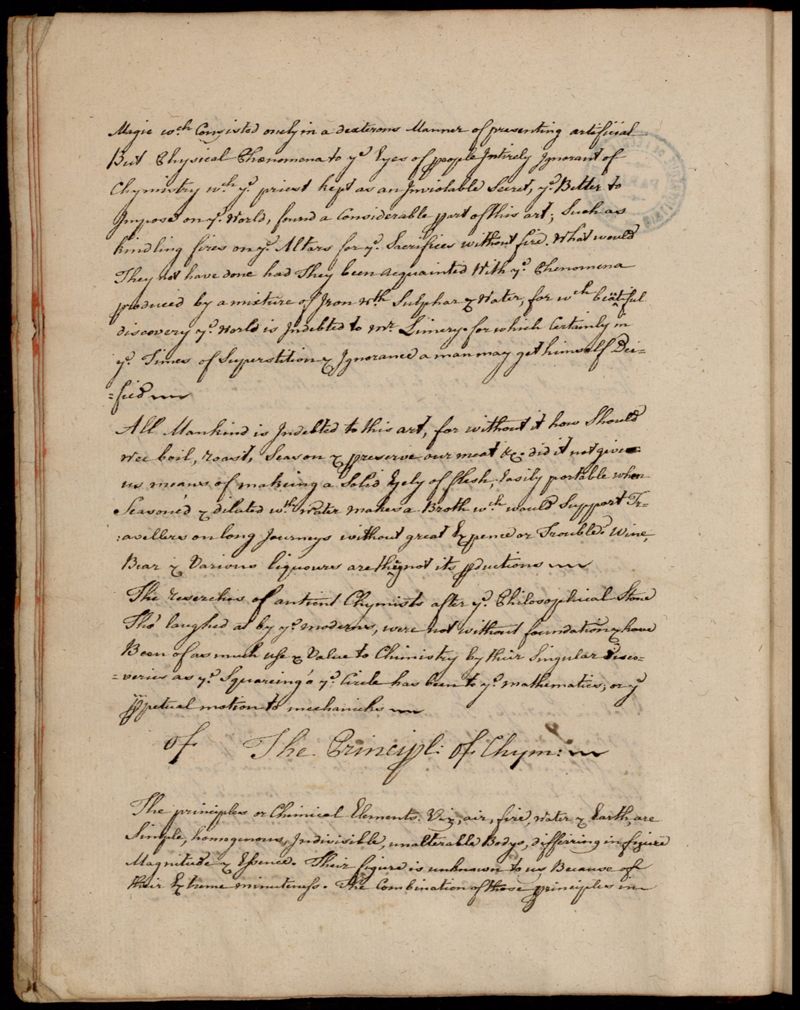 Magic wch Consisted onely in a dexterous Manner of presenting artificial
But Physical Phænomena to ye Eyes of people Intirely Ignorant of
Chymistry wch ye priest kept as an Inviolable Secret, ye Better to
Impose on ye World, found a Considerable part of this art; Such as
kindling fires on ye Altars for ye Sacrifices without fire. What would
They not have done had They been acquainted With ye Phenomena
produced by a mixture of Iron wth Sulphar & Water, for wch beautiful
discovery ye World is Indebted to Mr Limery; for which Certainly in
ye Times of Superstition & Ignorance a man may get himself Dei=
=fied
All Mankind is Indebted to this art, for without it how Should
Wee boil, roast, Season & preserve our meat &c did it not give
us means of makeing a Solid Gely of flesh, Easily portable when
Season'd & dilated wth Water makes a Broth wch would Support Tr=
=avellers on long Journeys without great Expence or Trouble? Wine,
Bear & Various liquours are they not its pductions
The reserches of antient Chymists after ye Philosophical Stone
Tho' laughed at by ye moderns, were not without foundation & have
Been of as much use & Value to Chimistry by their Singular Disco=
=veries as ye Squareing o ye Circle has been to ye mathematics, or ye
ppetual motion to mechanicks
Of The Principl: Of Chym:
The principles or Chimical Elements Viz, air, fire, Water & Earth, are
Simple, homogenous, Indivisible, unalterable Bodys, differing in figure
Magnitude & Essence. Their figure is unknown to us Because of
their Extreme minuteness. The Combination of those principles in